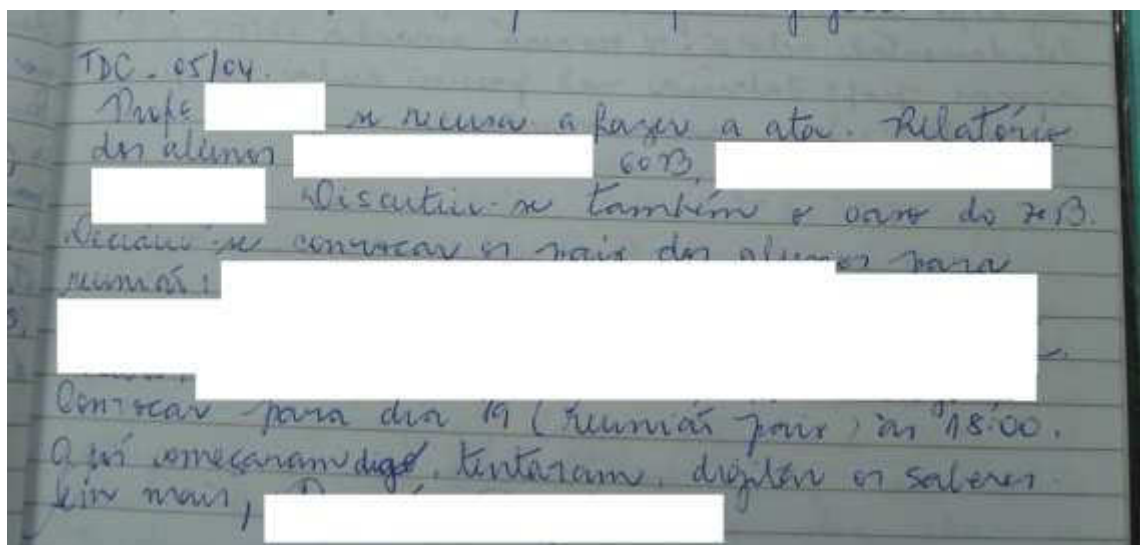 TDC - 05/04.
Profe se recusa a fazer a ata. Relatório
dos alunos 6ºB,
Discutiu-se também o caso do 7ºB.
Decidiu-se convocar os pais dos alunos para
reunião:
Convocar para dia 19 (reunião pais) às 18:00.
começaram tentaram os saberes
mais,